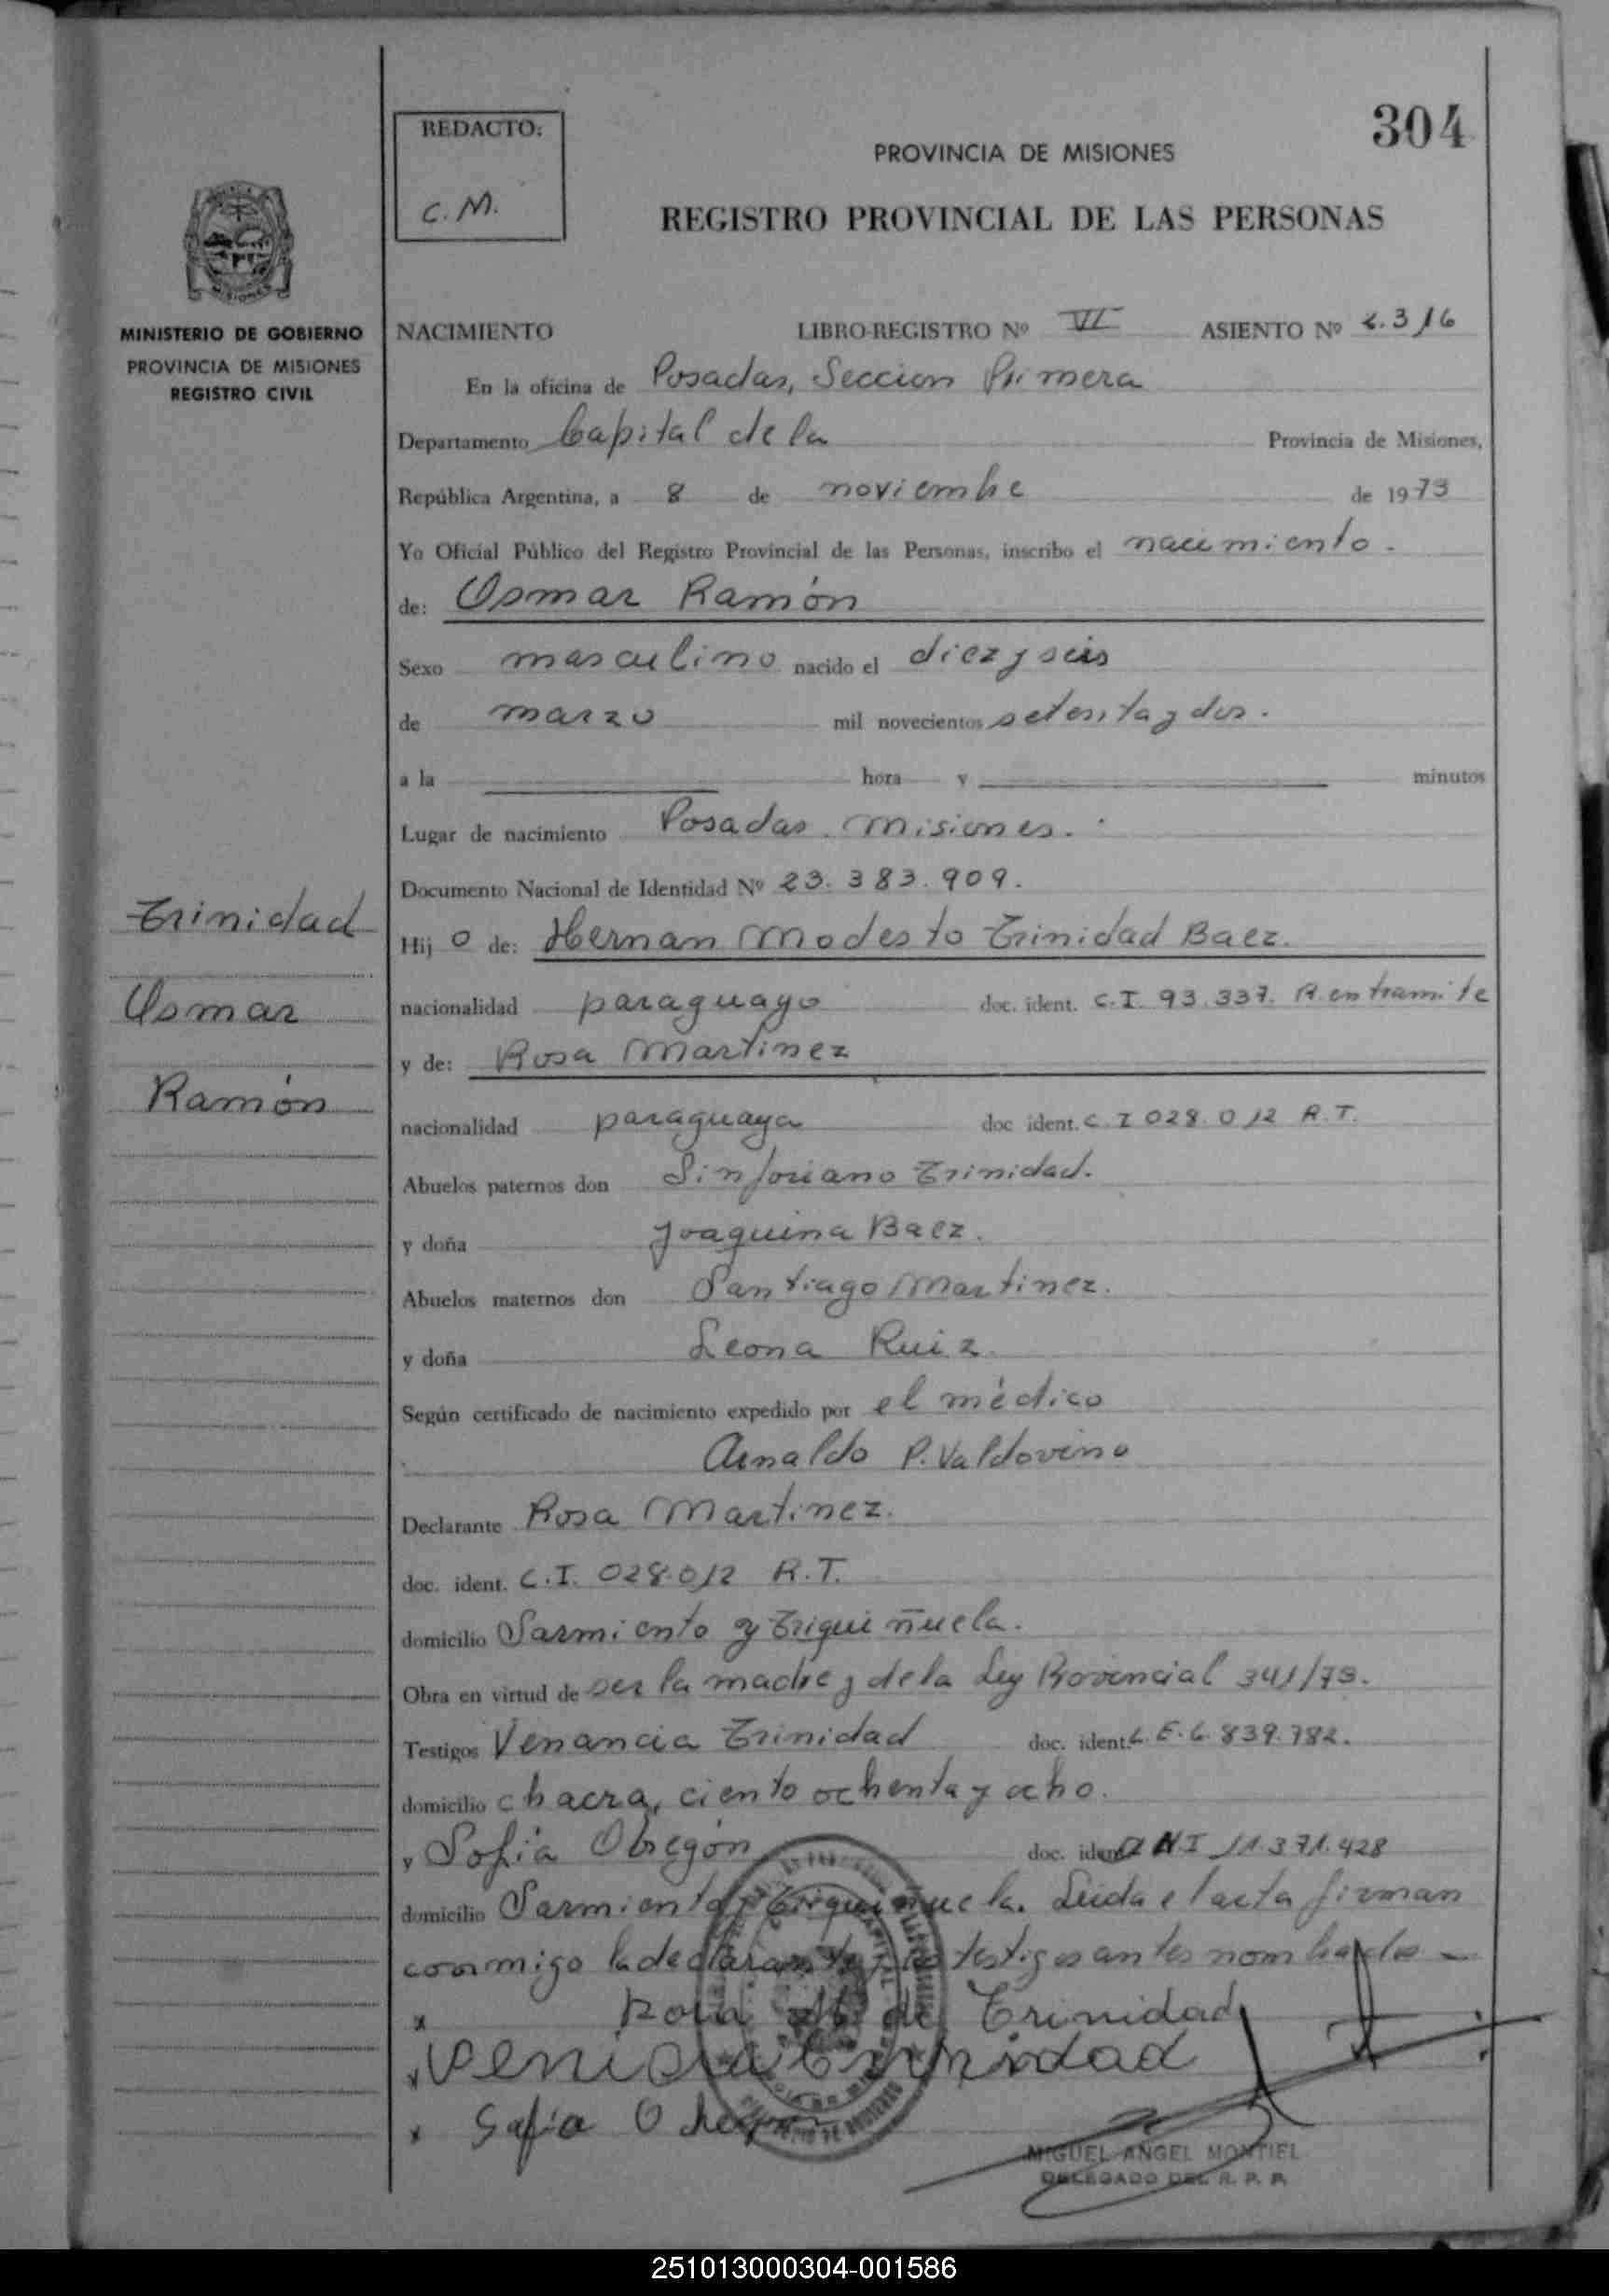 304
REDACTO:
C.M.
PROVINCIA DE MISIONES
REGISTRO PROVINCIAL DE LAS PERSONAS
MISIONES
MINISTERIO DE GOBIERNO
PROVINCIA DE MISIONES
REGISTRO CIVIL
NACIMIENTO LIBRO-REGISTRO Nº VI ASIENTO Nº 2.316
En la oficina de Posadas, Seccion Primera
Departamento Capital de la Provincia de Misiones,
República Argentina, a 8 de noviembre de 1973
Yo Oficial Público del Registro Provincial de las Personas, inscribo el nacimiento.
de: Osmar Ramón
Sexo masculino nacido el diez y seis
de marzo mil novecientos setenta y dos.
a la hora y minutos
Lugar de nacimiento Posadas. Misiones.
Documento Nacional de Identidad Nº 23.383.909.
Trinidad
Osmar
Ramón
Hij o de: Hernan Modesto Trinidad Baez.
nacionalidad paraguayo doc. ident. C.I. 93.337. R. en tramite
y de: Rosa Martinez
nacionalidad paraguaya doc ident. C.I 028.012 R.T.
Abuelos paternos don Sinforiano Trinidad.
y doña Joaquina Baez.
Abuelos maternos don Santiago Martinez.
y doña Leona Ruiz.
Según certificado de nacimiento expedido por el médico
Arnaldo P. Valdovino
Declarante Rosa Martinez.
doc. ident. C.I. 028.012 R.T.
domicilio Sarmiento y Triquiñuela.
Obra en virtud de ser la madre y de la Ley Provincial 341/73.
Testigos Venancia Trinidad doc. ident. L.E. 6.839.782.
domicilio chacra, ciento ochenta y ocho.
y Sofia Obregón doc. ident. DNI 11.371.428
domicilio Sarmiento y Triquiñuela. Leida el acta firman
conmigo la declarante y los testigos antes nombrados
x Rosa M de Trinidad
x Trinidad
x Safia
MIGUEL ANGEL MONTIEL
DELEGADO DEL R. P. P.
251013000304-001586